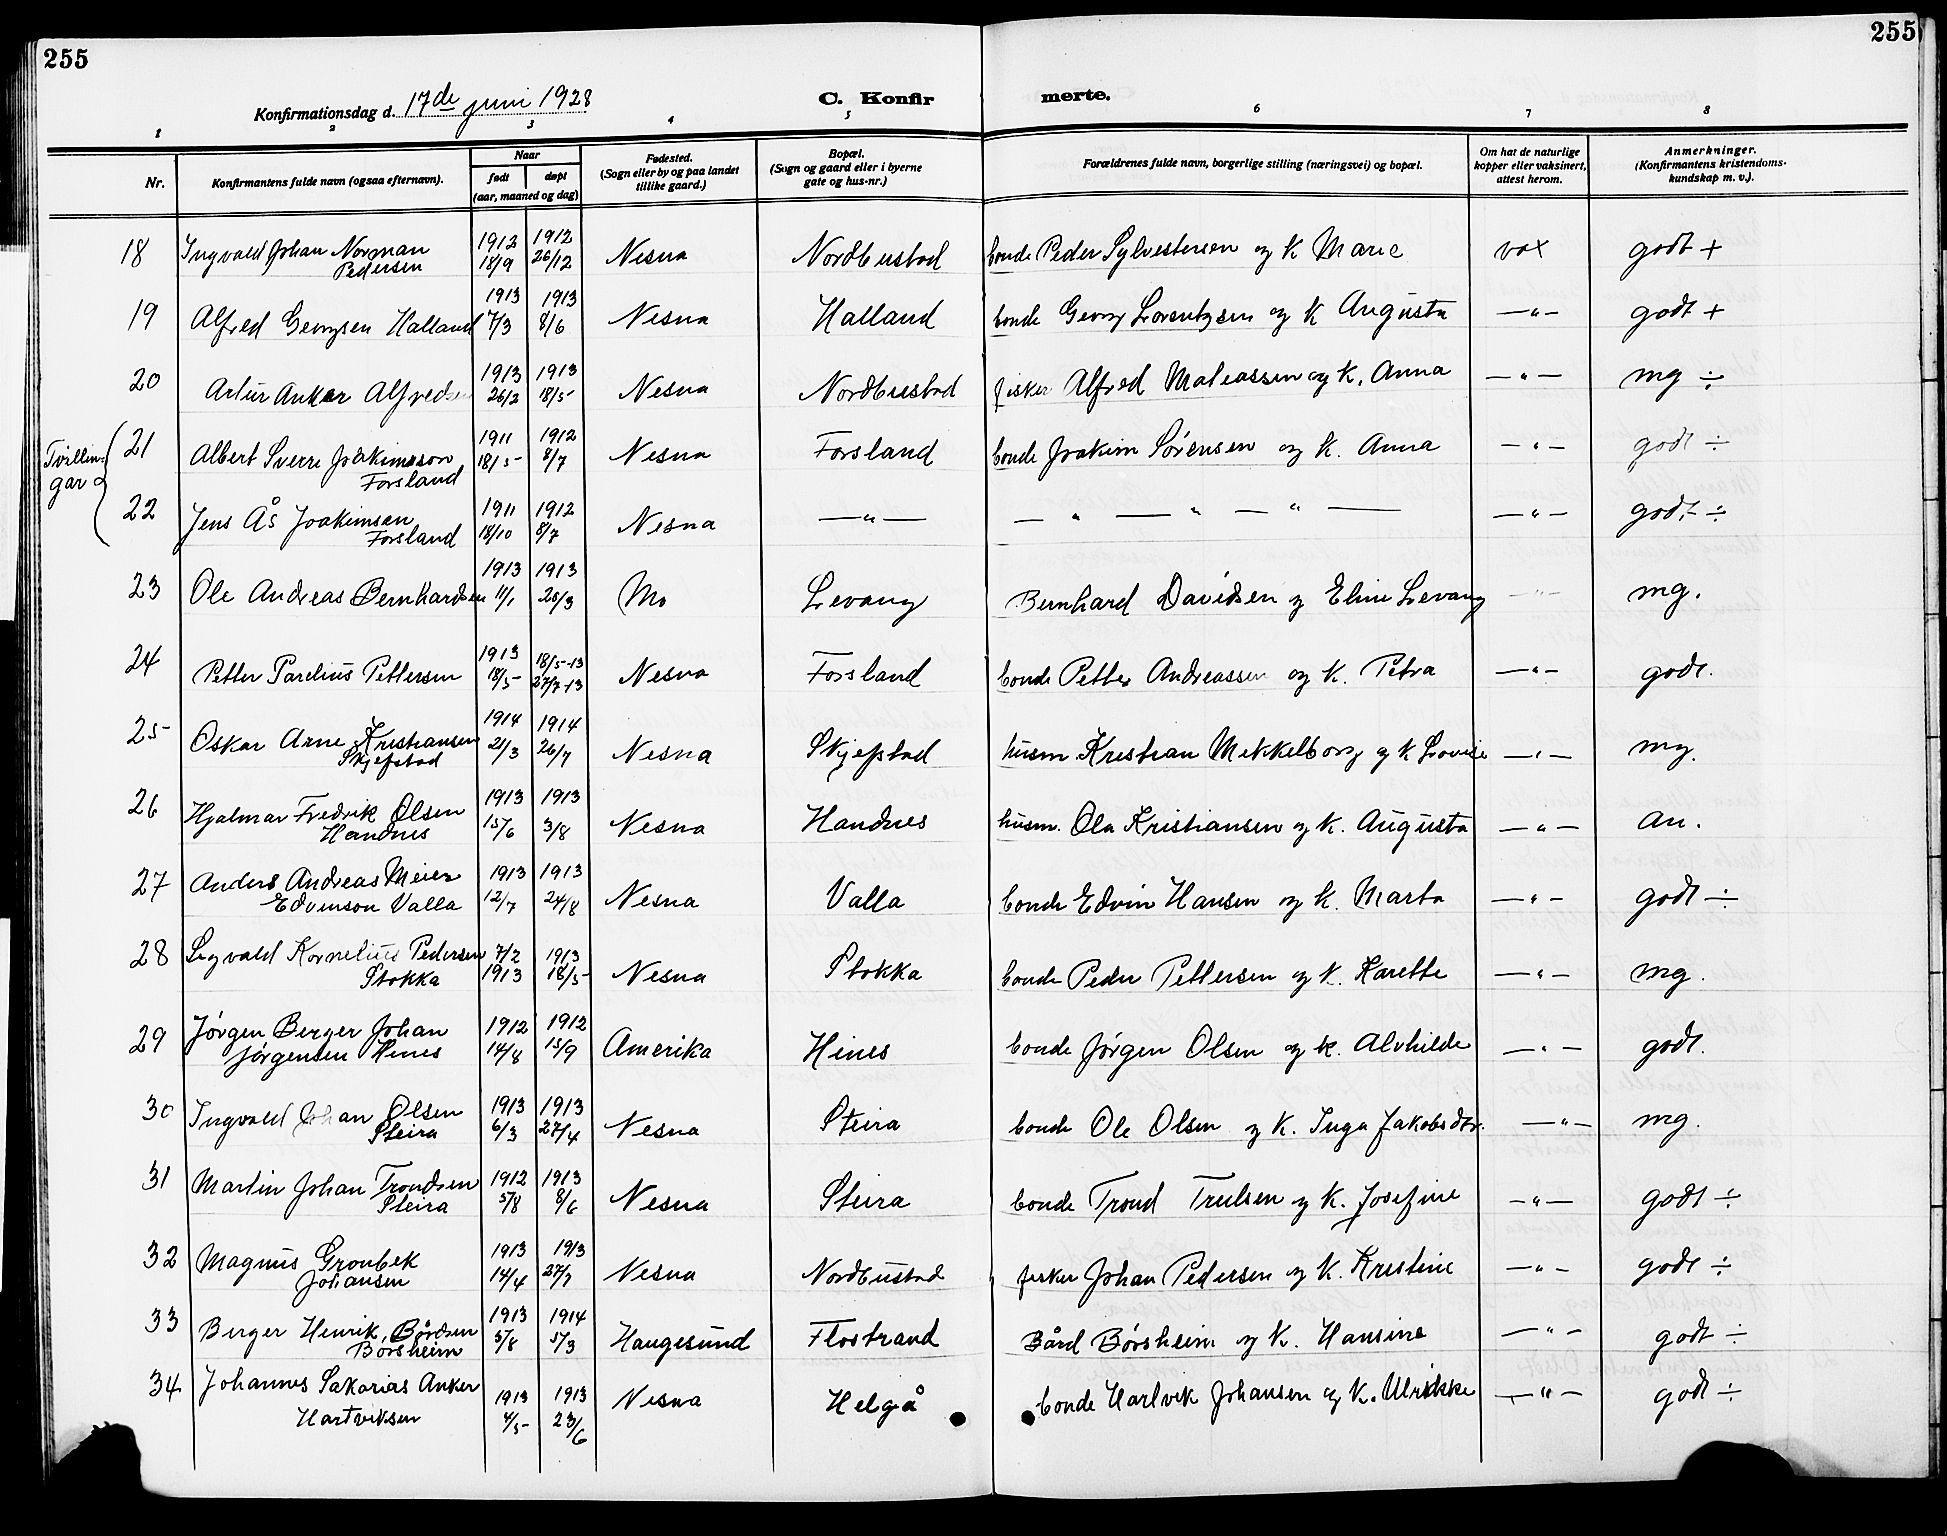 255
255
Konfirmationsdag d. 17de juni 1928
C. Konfir
merte.
1 2 3 4 5 6 7 8
Nr.
Konfirmantens fulde navn (ogsaa efternavn).
Naar
født døpt
(aar, maaned og dag)
Fødested.
(Sogn eller by og paa landet
tillike gaard.)
Bopæl.
(Sogn og gaard eller i byerne
gate og hus-nr.)
Forældrenes fulde navn, borgerlige stilling (næringsvei) og bopæl.
Om hat de naturlige
kopper eller vaksinert,
attest herom.
Anmerkninger.
(Konfirmantens kristendoms-
kundskap m. v.).
18 Ingvald Johan Norman 1912 1912 Nesna Nordbustad bonde Peder Sylvestersen og k Marie vax godt +
Pedersen 18/9 26/12
1913 1913
19 Alfred Georgsen Halland 7/3 8/6 Nesna Halland bonde Georg Lorentzsen og k Augusta —"— godt +
20 1913 1913
Artur Anker Alfredsen 26/2 18/5 Nesna Nordbustad fisker Alfred Mateassen og k. Anna —"— mg ÷
Tvillin-
gar
21 1911 1912
Albert Sverre Joakimsson 18/5 8/7 Nesna Forsland bonde Joakim Sørensen og k. Anna —"— godt ÷
Forsland
22 1911 1912
Jens Ås Joakimsen 18/10 8/7 Nesna —"— — " — " — " — —"— godt ÷
Forsland
1913 1913
23 Ole Andreas Bernhardsen 11/1 26/3 Mo Levang Bernhard Davidsen og Eline Levang —"— mg.
24 1913 18/5-13
Petter Parelius Pettersen 18/5 27/7-13 Nesna Forsland bonde Petter Andreassen og k. Petra —"— godt.
25 1914 1914
Oskar Arne Kristiansen 21/3 26/7 Nesna Skjefstad husm Kristian Mekkelborg og k Lovise —"— mg.
Skjefstad
26 1913 1913
Hjalmar Fredrik Olsen 15/6 3/8 Nesna Handnes husm. Ola Kristiansen og k. Augusta —"— an.
Handnes
27 Anders Andreas Meier 1913 1913
Edvinson Valla 12/7 24/8 Nesna Valla bonde Edvin Hansen og k. Marta —"— godt ÷
28 Sigvald Kornelius Pedersen 7/2 1913
Stokka 1913 18/5 Nesna Stokka bonde Peder Pettersen og k. Karette —"— mg.
29 Jørgen Berger Johan 1912 1912
Jørgensen Hines 14/8 15/9 Amerika Hines bonde Jørgen Olsen og k. Alvhilde —"— godt.
30 Ingvald Johan Olsen 1913 1913
Steira 6/3 27/4 Nesna Steira bonde Ole Olsen og k. Inga Jakobsdtr. —"— mg.
31 Martin Johan Trondsen 1912 1913
Steira 5/8 8/6 Nesna Steira bonde Trond Trulsen og k. Josefine —"— godt ÷
32 Magnus Gronbek 1913 1913
Johansen 14/4 27/7 Nesna Nordbustad fisker Johan Pedersen og k. Kristine —"— godt ÷
33 1913 1914
Berger Henrik Bårdsen 5/8 5/3 Haugesund Flostrand Bård Børsheim og k. Hansine —"— godt ÷
Børsheim
34 Johannes Sakarias Anker 1913 1913 Nesna Helgå bonde Hartvik Johansen og k. Ulrikke —"— godt ÷
Hartviksen 4/5 23/6